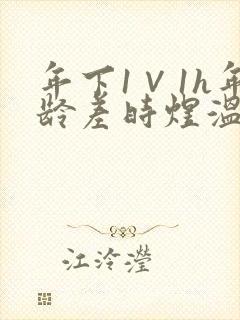 年下1V1h年
龄差时煜温
江泠滢